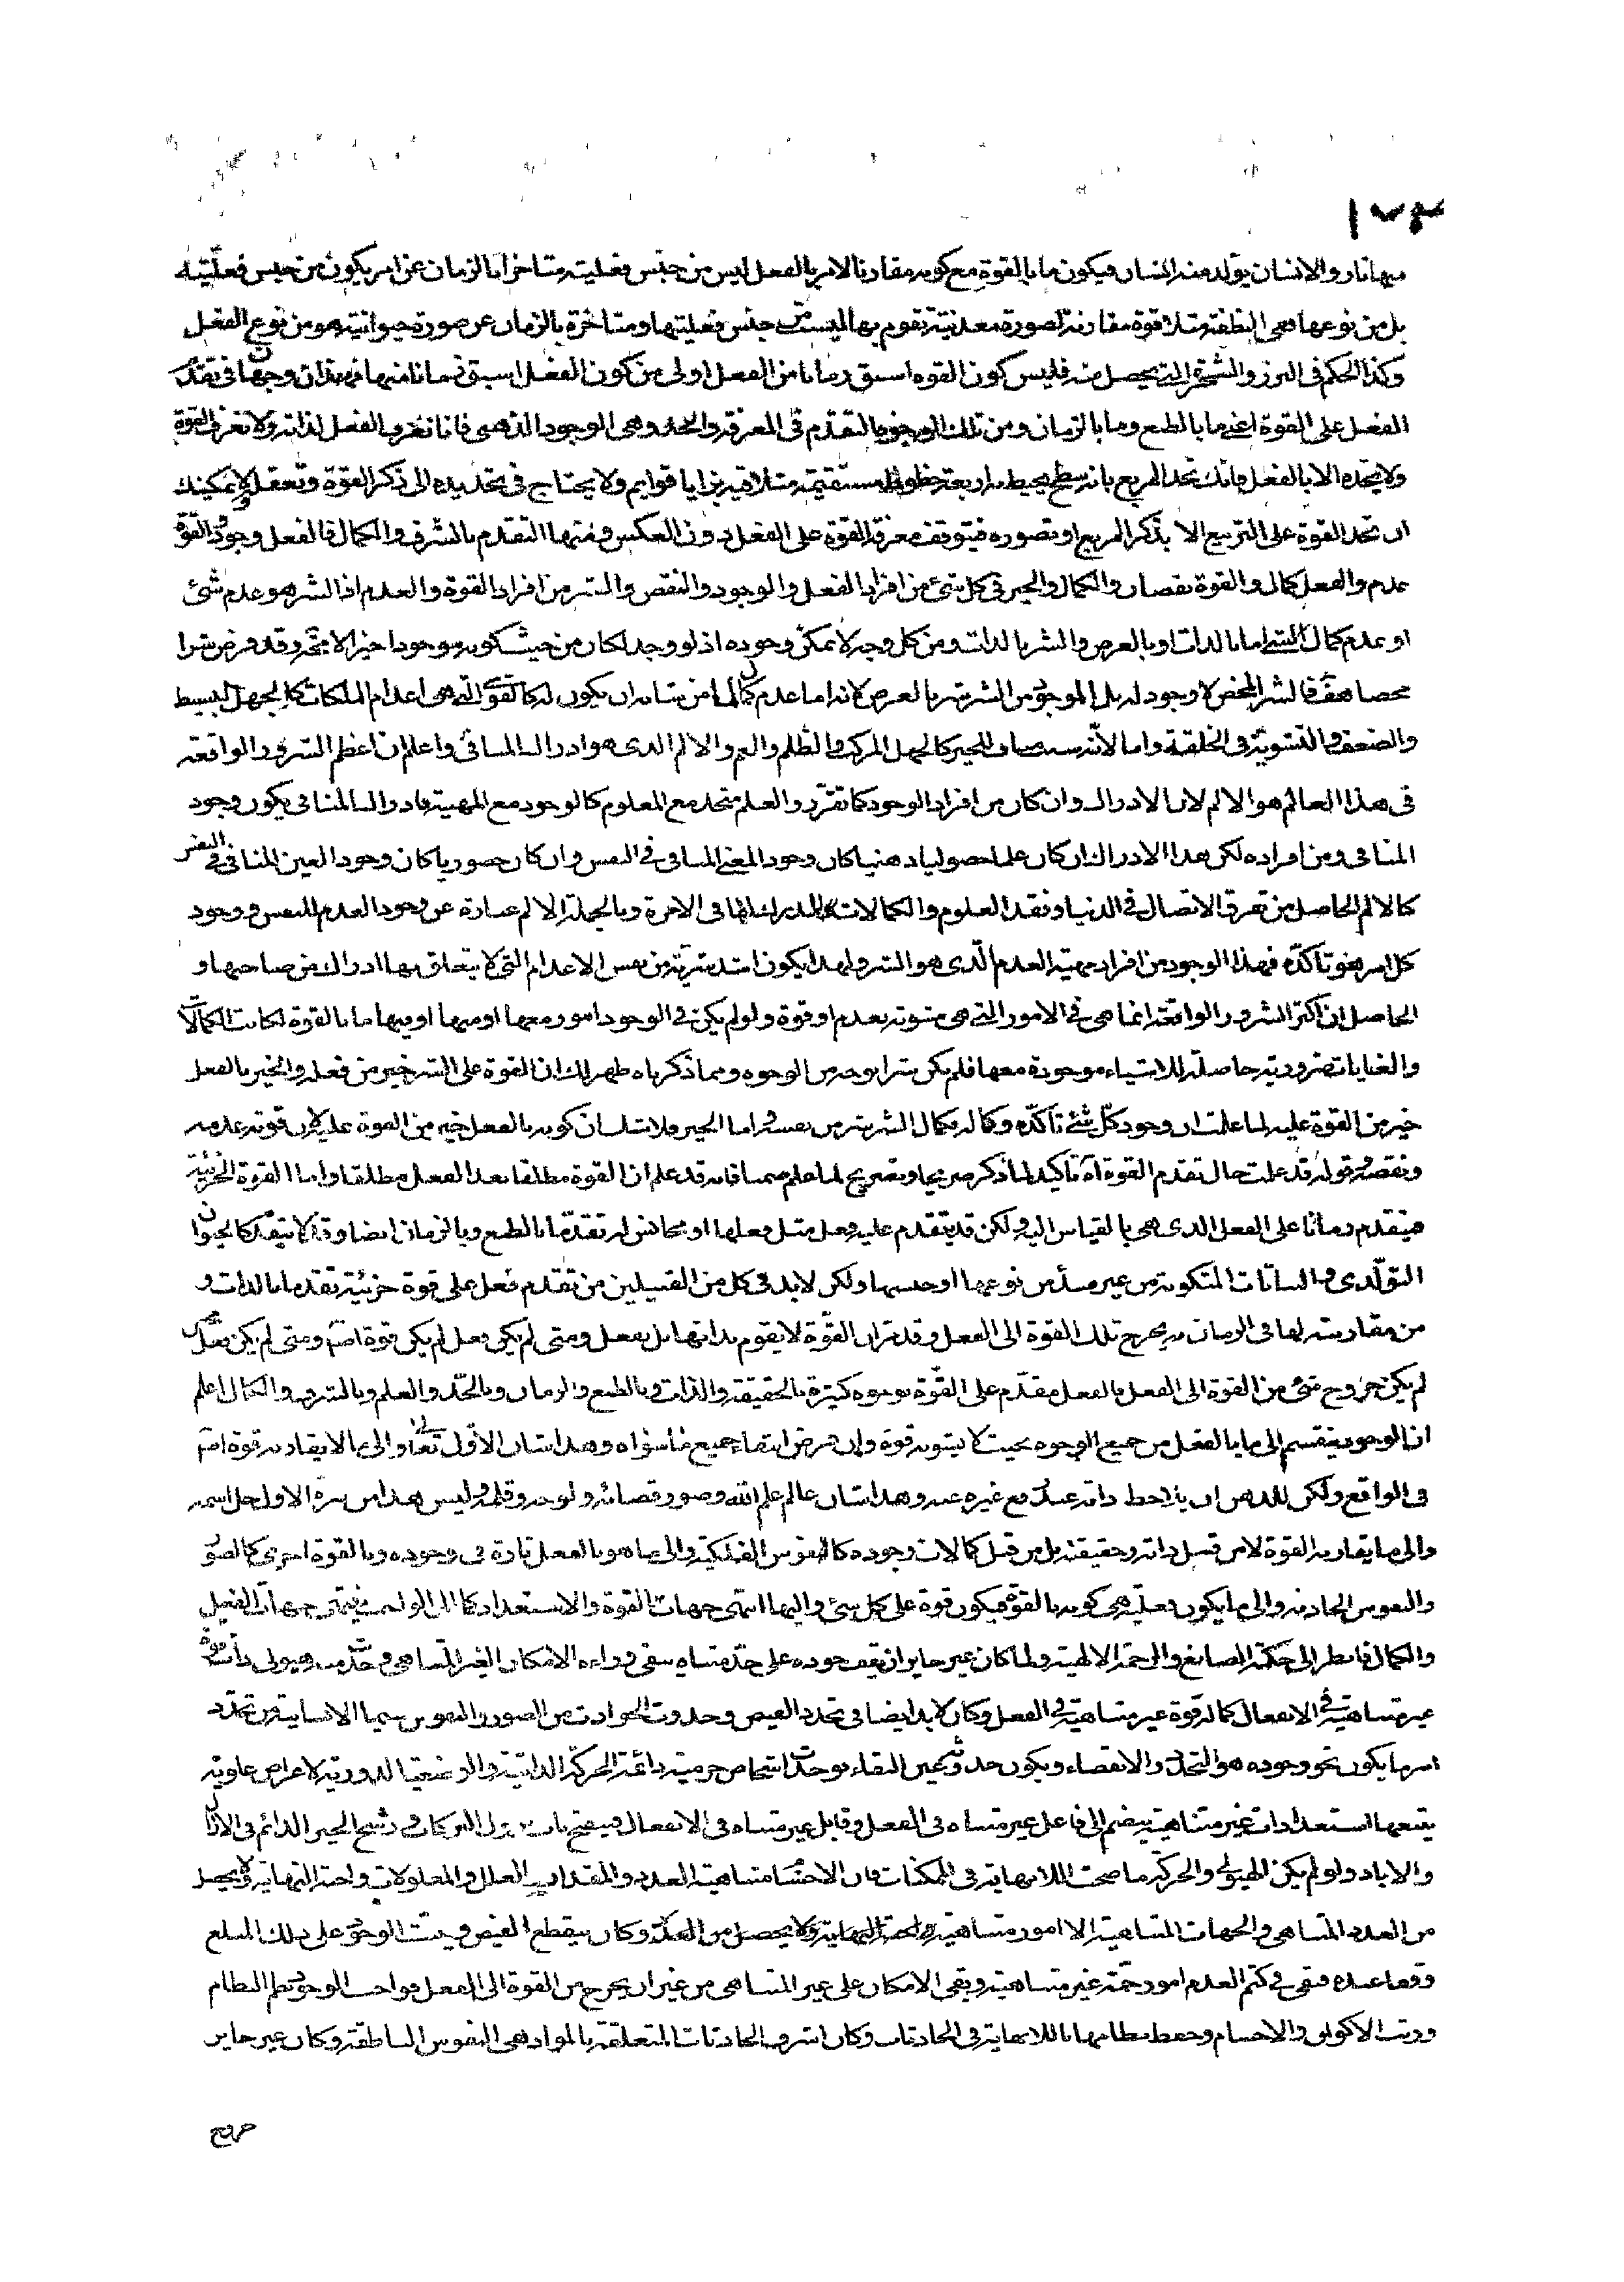 ١٧٣
منها نار والانسان يتولد منه انسان فيكون ما بالقوة مع كونه مقارنا لامر بالفعل ليس من جنس فعليته متاخرا بالزمان عن امر يكون من جنس فعليته
بل من نوعها ففى النطفة مثلا قوة مقارنة لصورة معدنية تقوم بها ليست من جنس فعليتها ومتاخرة بالزمان عن صورة حيوانية هو من نوع الفعل
وكذا الحكم فى البرز والشجرة التى يحصل منه فليس كون القوه اسبق زمانا من الفعل اولى من كون الفعل اسبق زمانا منها فهذان وجهان فى تقدم
الفعل على القوة اعنى ما بالطبع وما بالزمان ومن تلك الوجوه التقدم فى المعرفة والحد وهى الوجود الذهنى فانا نعرف الفعل لذاته ولا نعرف القوة
ولا نحده الا بالفعل فانك تحد المربع بانه سطح يحيط به اربعة خطوط مستقيمة متلاقية بزوايا قوايم ولا يحتاج فى تحديده الى ذكر القوة وتعقله ولا يمكنك
ان تحد القوة على التربيع الا بذكر المربع او تصوره فيتوقف معرفة القوة على الفعل بدون العكس ومنها التقدم بالشرف والكمال فالفعل وجود والقوة
عدم والفعل كمال والقوة نقصان والكمال والخير فى كل شئ من افراد الفعل والوجود والنقص والشر من افراد القوة والعدم اذ الشر هو عدم شئ
او عدم كمال الشئ اما بالذات او بالعرض والشر بالذات ومن كل وجه لا يمكن وجوده اذ لو وجد لكان من حيث كونه موجودا خيرا لا محة وقد فرض شرا
محضا هف فالشر المحض لا وجود له بل الموجود من الشر شر بالعرض لانه اما عدم كمال لما من شانه ان يكون له كالقوى التى هى اعدام الملكات كالجهل البسيط
والضعف والتشويه فى الخلقة واما لانه سبب مناف للخير كالجهل المركب والظلم والغم والالم الذى هو ادراك المنافى واعلم ان اعظم الشرور الواقعة
فى هذا العالم هو الالم لان الادراك وان كان من افراد الوجود كما تقرر والعلم متحد مع المعلوم كالوجود مع المهية فادراك المنافى يكون وجود
المنافى ومن افراده لكن هذا الادراك ان كان علما حصوليا ذهنيا كان وجود المعنى المنافى فى النفس وان كان حضوريا كان وجود العين المنافى فى النفس
كالالم الحاصل من تفرق الاتصال فى الدنيا وفقد العلوم والكمالات المدرك لها فى الاخرة وبالجملة الالم عبارة عن وجود العدم للنفس ووجود
كل امر هو تاكده فهذا الوجود من افراد مهية العدم الذى هو الشر ولهذا يكون اشد شرية من نفس الاعدام التى لا يتعلق بها ادراك من صاحبها و
الحاصل ان اكثر الشرور الواقعة انما هى فى الامور التى هى مشوبة بعدم او قوة ولو لم يكن فى الوجود امور معها او منها او فيها ما بالقوة لكانت الكمالات
والغايات ضرورية حاصلة للاشياء موجودة معها فلم يكن شرا بوجه من الوجوه ومما ذكرناه ظهر لك ان القوة على الشر خير من فعله والخير بالفعل
خير من القوة عليه لما علمت ان وجود كل شئ تاكده وكماله فكمال الشر شر من نفسه واما الخير فلا شك ان كونه بالفعل خير من القوة عليه لان قوته عدمه
ونقصه قوله قد علمت حال تقدم القوة اه تاكيد لما ذكر صريحا وتصريح لما علم ضمنا فانه قد علم ان القوة مطلقا بعد الفعل مطلقا واما القوة الجزئية
فيتقدم زمانا على الفعل الذى هى بالقياس اليه ولكن قد يتقدم عليه فعل مثل فعلها او مجانس له تقدما بالطبع وبالزمان ايضا وقد لا يتقدم كالحيوان
التولدى والنباتات المتكونة من غير مبدأ من نوعها او جنسها ولكن لابد فى كل من القبيلين من تقدم فعل على قوة جزئية تقدما بالذات و
من مقارنته لها فى الزمان به يخرج تلك القوة الى الفعل وقد مر ان القوة لا يقوم بذاتها بل بفعل ومتى لم يكن فعل لم يكن قوة اصلا ومتى لم يكن مخرج بالفعل
لم يكن خروج شئ من القوة الى الفعل فالفعل مقدم على القوة بوجوه كثيرة بالحقيقة والذات وبالطبع والزمان وبالحد والعلم وبالشرف والكمال اعلم
ان الموجود ينقسم الى ما بالفعل من جميع الوجوه بحيث لا يشوبه قوة وان فرض انتفاء جميع ما سواه وهذا شان الاول تعالى والى ما لا يقارنه قوة اصلا
فى الواقع ولكن للذهن ان يلاحظ ذاته عند قطع غيره عنه وهذا شان عالم علم الله وصور قضائه ولوحه وقلمه وليس هذا من سرة الاول جل اسمه
والى ما يقارنه القوة لا من قبل ذاته وحقيقته بل من قبل كمالات وجوده كالنفوس الفلكية والى ما هو بالفعل تارة فى وجوده وبالقوة اخرى كالصور
والنفوس الحادثة والى ما يكون فعليته هى كونه بالقوة فيكون قوة على كل شئ واليها انتهى جهات القوة والاستعداد كما الى الواجب ينتهى جهات الفعل
والكمال فانظر الى حكمة الصانع والرحمة الالهية ولما كان غير جايز ان يقف جوده على حد متناه يبقى وراءه الامكان الغير المتناهى فى هيولى ذات قوة
غير متناهية فى الانفعال كما له قوة غير متناهية فى الفعل وكان لابد ايضا فى تجدد الفيض وحدوث الحوادث من الصور والنفوس سيما الانسانية من تجدد
امر ما يكون نحو وجوده هو التجدد والانقضاء ويكون حدوثه عين البقاء فوجدت اشخاص جرمية دائمة الحركة الذاتية والوضعية الدورية لاغراض علوية
يتبعها استعدادات غير متناهية ينضم الى فاعل غير متناه فى الفعل وقابل غير متناه فى الانفعال فيفتح باب نزول البركات ورشح الخير الدائم فى الازال
والاباد ولو لم يكن الهيولى والحركة ما صحت اللانهاية فى الممكنات فان الاجسام متناهية العدد والمقدار والعلل والمعلولات واجبة النهاية ولا يحصل
من العدد المتناهى والجهات المتناهية الا امور متناهية واجبة النهاية ولا يحصل من العدد وكان ينقطع الفيض ويثبت الوجود على ذلك المبلغ
وفيما عنده فبقى فى كتم العدم امور جمة غير متناهية ويبقى الامكان على غير المتناهى من غير ان يخرج من القوة الى الفعل فواجب الوجود نظم النظام
ورتب الاكوان والاجسام وحفظ نظامها باللانهاية فى الحادثات وكان اشرف الحادثات المتعلقة بالمواد هى النفوس الناطقة وكان غير جايز
خروج